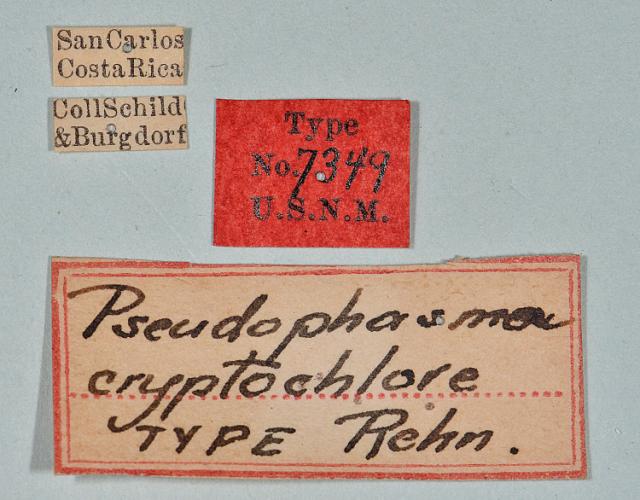 San Carlos
Costa Rica
Coll Schild
& Burgdorf
Type
No. 7349
U.S.N.M.
Pseudophasma
cryptochlore
TYPE Rehn.